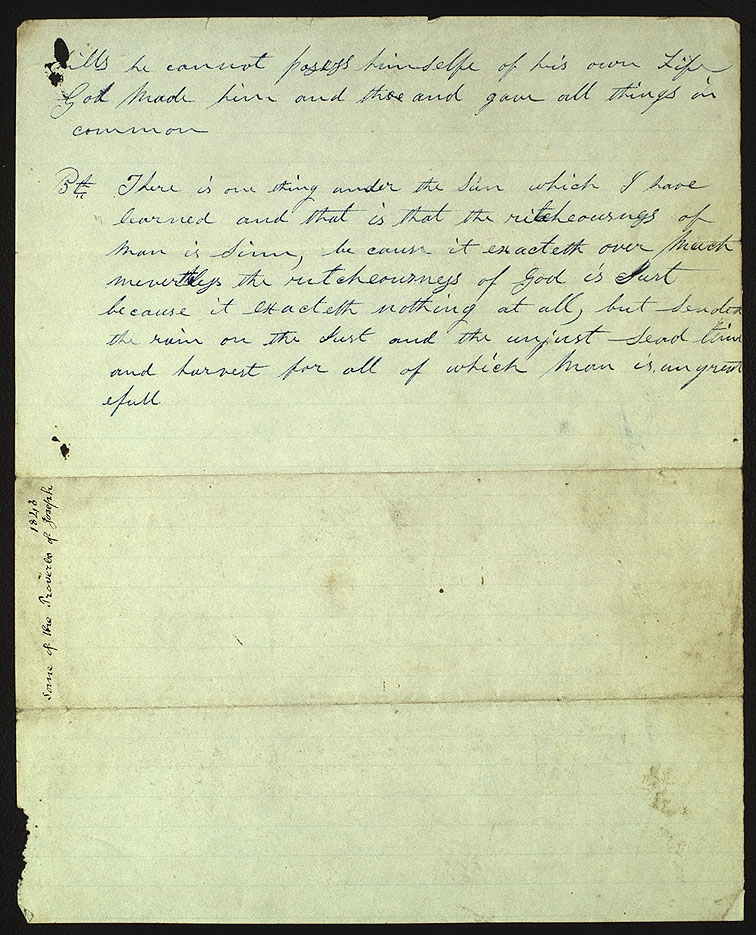 hills he cannot possess himselfe of his own Life
God Made him and thee and gave all things in
common
5th There is one thing under the Sun which I have
learned and that is that the ritcheousness of
man is Sinn, be cause it exacteth over Much
nevertheless the rutcheousness of God is Just
because it exacteth nothing at all, but Sendeth
the rain on the Just and the unjust Seed time
and harvest for all of which Man is ungreat
efull
1843
Some of the Proverbs of Joseph